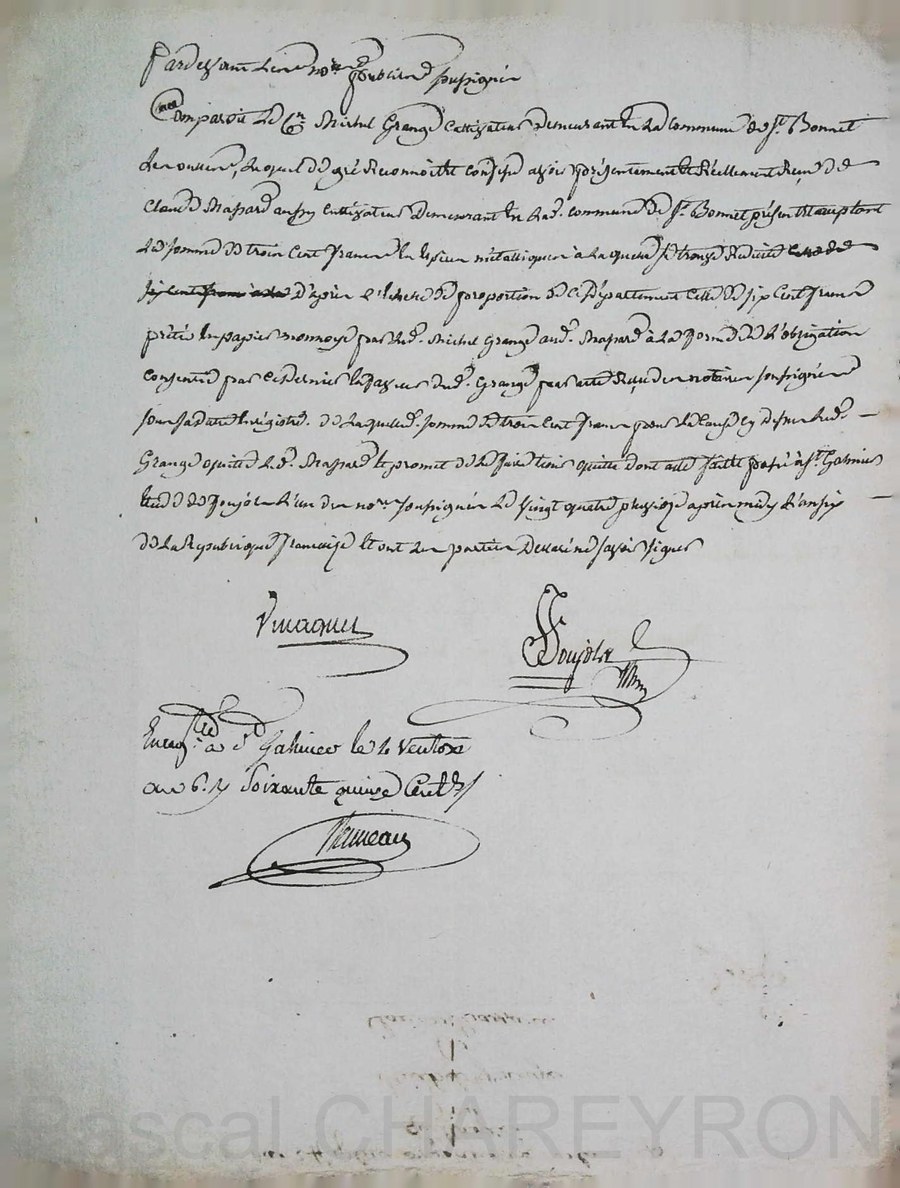 Pardevant les no.res publics soussignés
Comparoit Le C.n Michel Grange Cultivateur Demeurant En La Commune de S.t Bonnet
Les oules, Lequel de gré Reconnoit et Confesse avoir présentement et Réellement Reçu de
Claude Massard aussy Cultivateur Demeurant En Lad. commune de S.t Bonnet présent et acceptant
La somme de trois Cent francs En Espèces métalliques à Laquelle se trouve Réduite
d'après l'échelle de proportion de ce Département Celle de six Cent francs
prêtés En papier monnoye par Led. Michel Grange aud. Massard à La forme de L'obligation
Consentie par Ce dernier En faveur dud. Grange par acte Reçu des notaires soussignés
sous sa datte Enregistré. de Laquelle d. somme de trois Cent francs pour La Cause Cy dessus Led.
Grange quitte Led. Massard Et promet de Le faire tenir quitte dont acte fait et passé à S.t Galmier
Etude de Poujol L'un des no.res soussignés Le vingt quatre pluviose après midy L'an six
de La Republique française Et ont Les parties Déclaré ne savoir signer
Poujol
Enreg.tré à S.t Galmier le 2 Ventose
an 6. Soixante quinze Cent.s
Pascal CHAREYRON